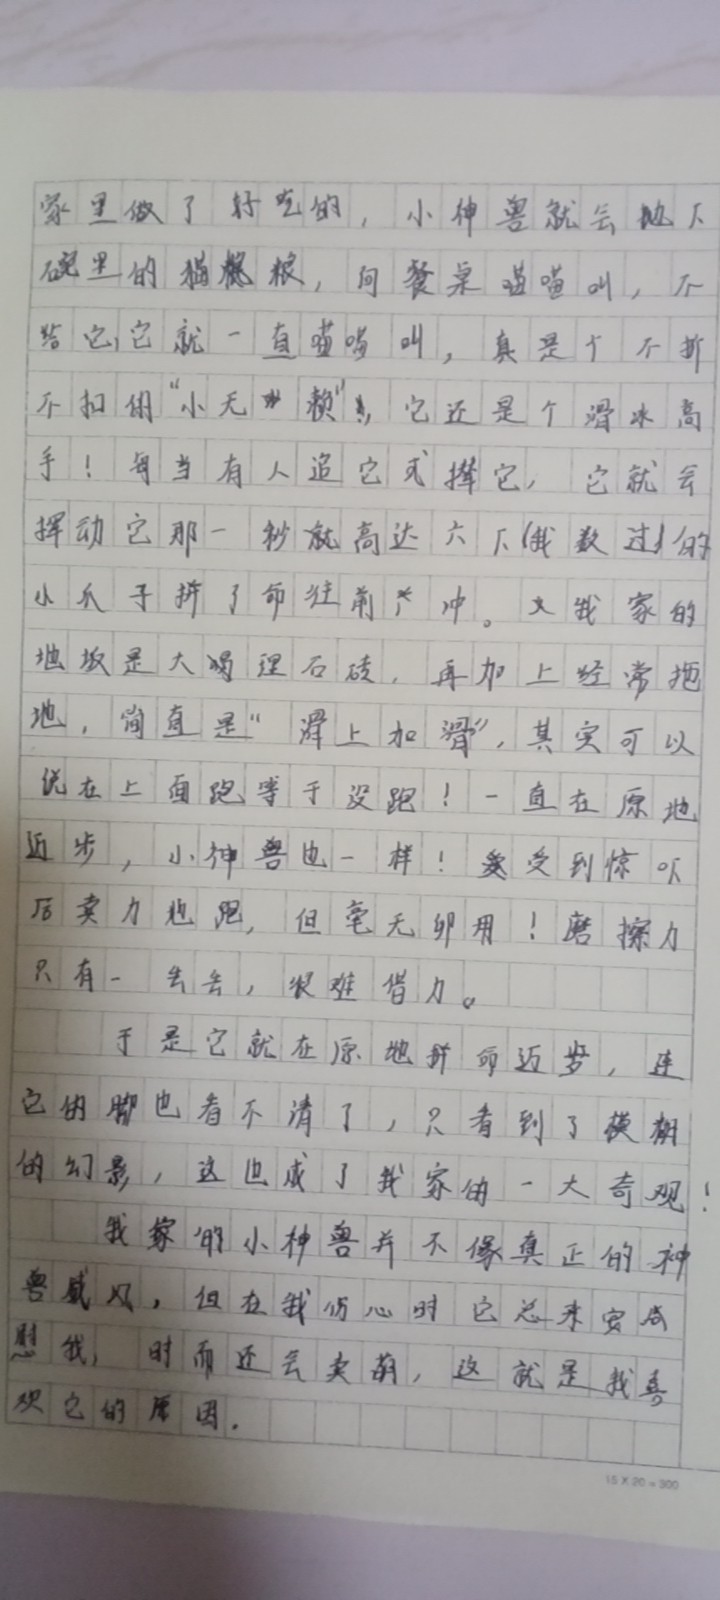 家里做了好吃的，小神兽就会抛下
碗里的猫粮，问餐桌喵喵叫，不
给它，它就一直喵喵叫，真是个不折
不扣的“小无赖”！它还是个滑冰高
手！每当有人追它或撵它，它就会
挥动它那一秒就高达六下（我数过）的
小爪子拼了命往前冲。又我家的
地坂是大竭理石砖，再加上经常拖
地，简直是“滑上加滑”，其实可以
说在上面跑等于没跑！一直在原地
迈步，小神兽也一样！受到惊吓
后卖力地跑，但毫无卵用！磨擦力
只有一丢丢，很难借力。
于是它就在原地拼命迈步，连
它的脚也看不清了，只看到了模糊
的幻影，这也成了我家的一大奇观！
我家的小神兽并不像真正的神
兽威风，但在我伤心时它总来安
慰我，时而还会卖萌，这就是我喜
欢它的原因.
15 X 20 = 300